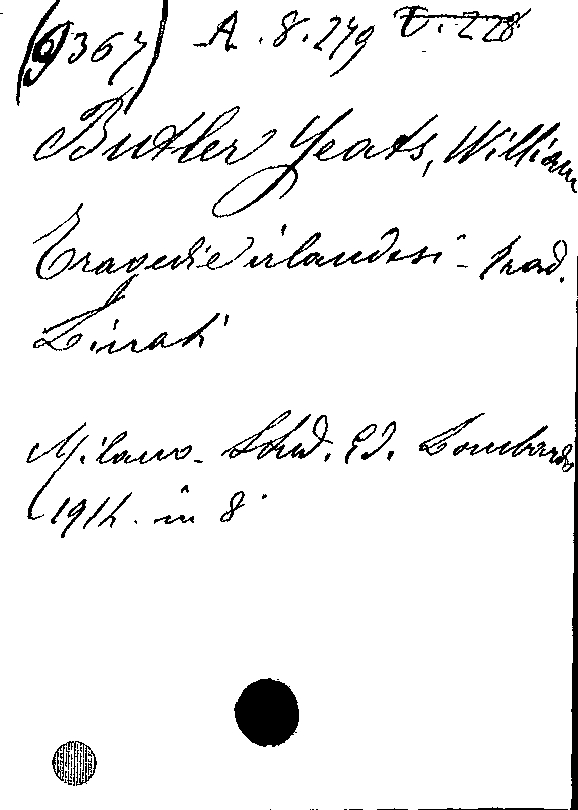 (9367) A.8.279 V.228
Butler Yeats, William
Tragedie irlandesi - trad.
Linati
Milano - Stud. Ed. Lombardo
1914. in 8°